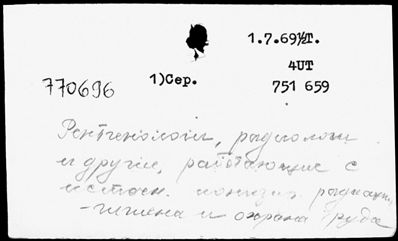 1.7.69½Т.
4UT
770696 1)Сер. 751 659
Рентгенологи, радиологи
и другие, работающие с
источн. ионизир. радиации
- гигиена и охрана труда